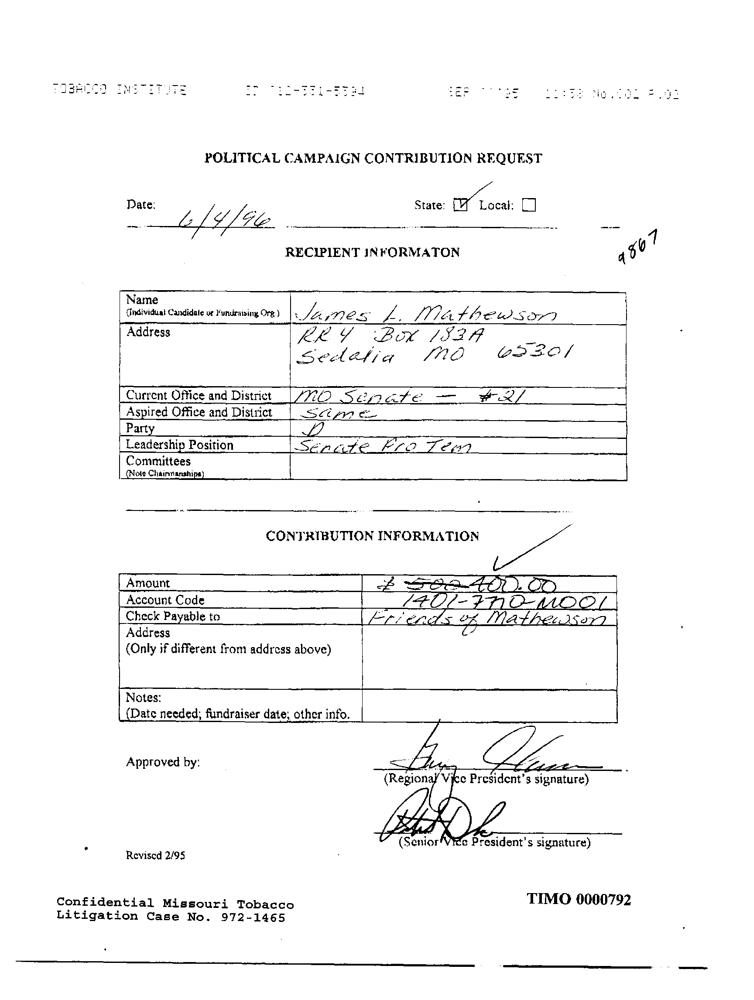 TOBACCO INSTITUTE
POLITICAL CAMPAIGN CONTRIBUTION REQUEST
Date: 6/4/96 State: Local:
9867
RECIPIENT INFORMATON
Name James L. Mathewson
(Individual Candidate or Fundraising Org.)
Address RR 4 Box 183A
Sedalia MO 65301
Current Office and District MO Senate - #21
Aspired Office and District Same
Party D
Leadership Position Senate Pro Tem
Committees
(Note Chairmanships)
CONTRIBUTION INFORMATION
Amount $ 500 400.00
Account Code 1401-7710-MO01
Check Payable to Friends of Mathewson
Address
(Only if different from address above)
Notes:
(Date needed; fundraiser date; other info.
Approved by:
(Regional Vice President's signature)
(Senior Vice President's signature)
Revised 2/95
Confidential Missouri Tobacco
Litigation Case No. 972-1465
TIMO 0000792